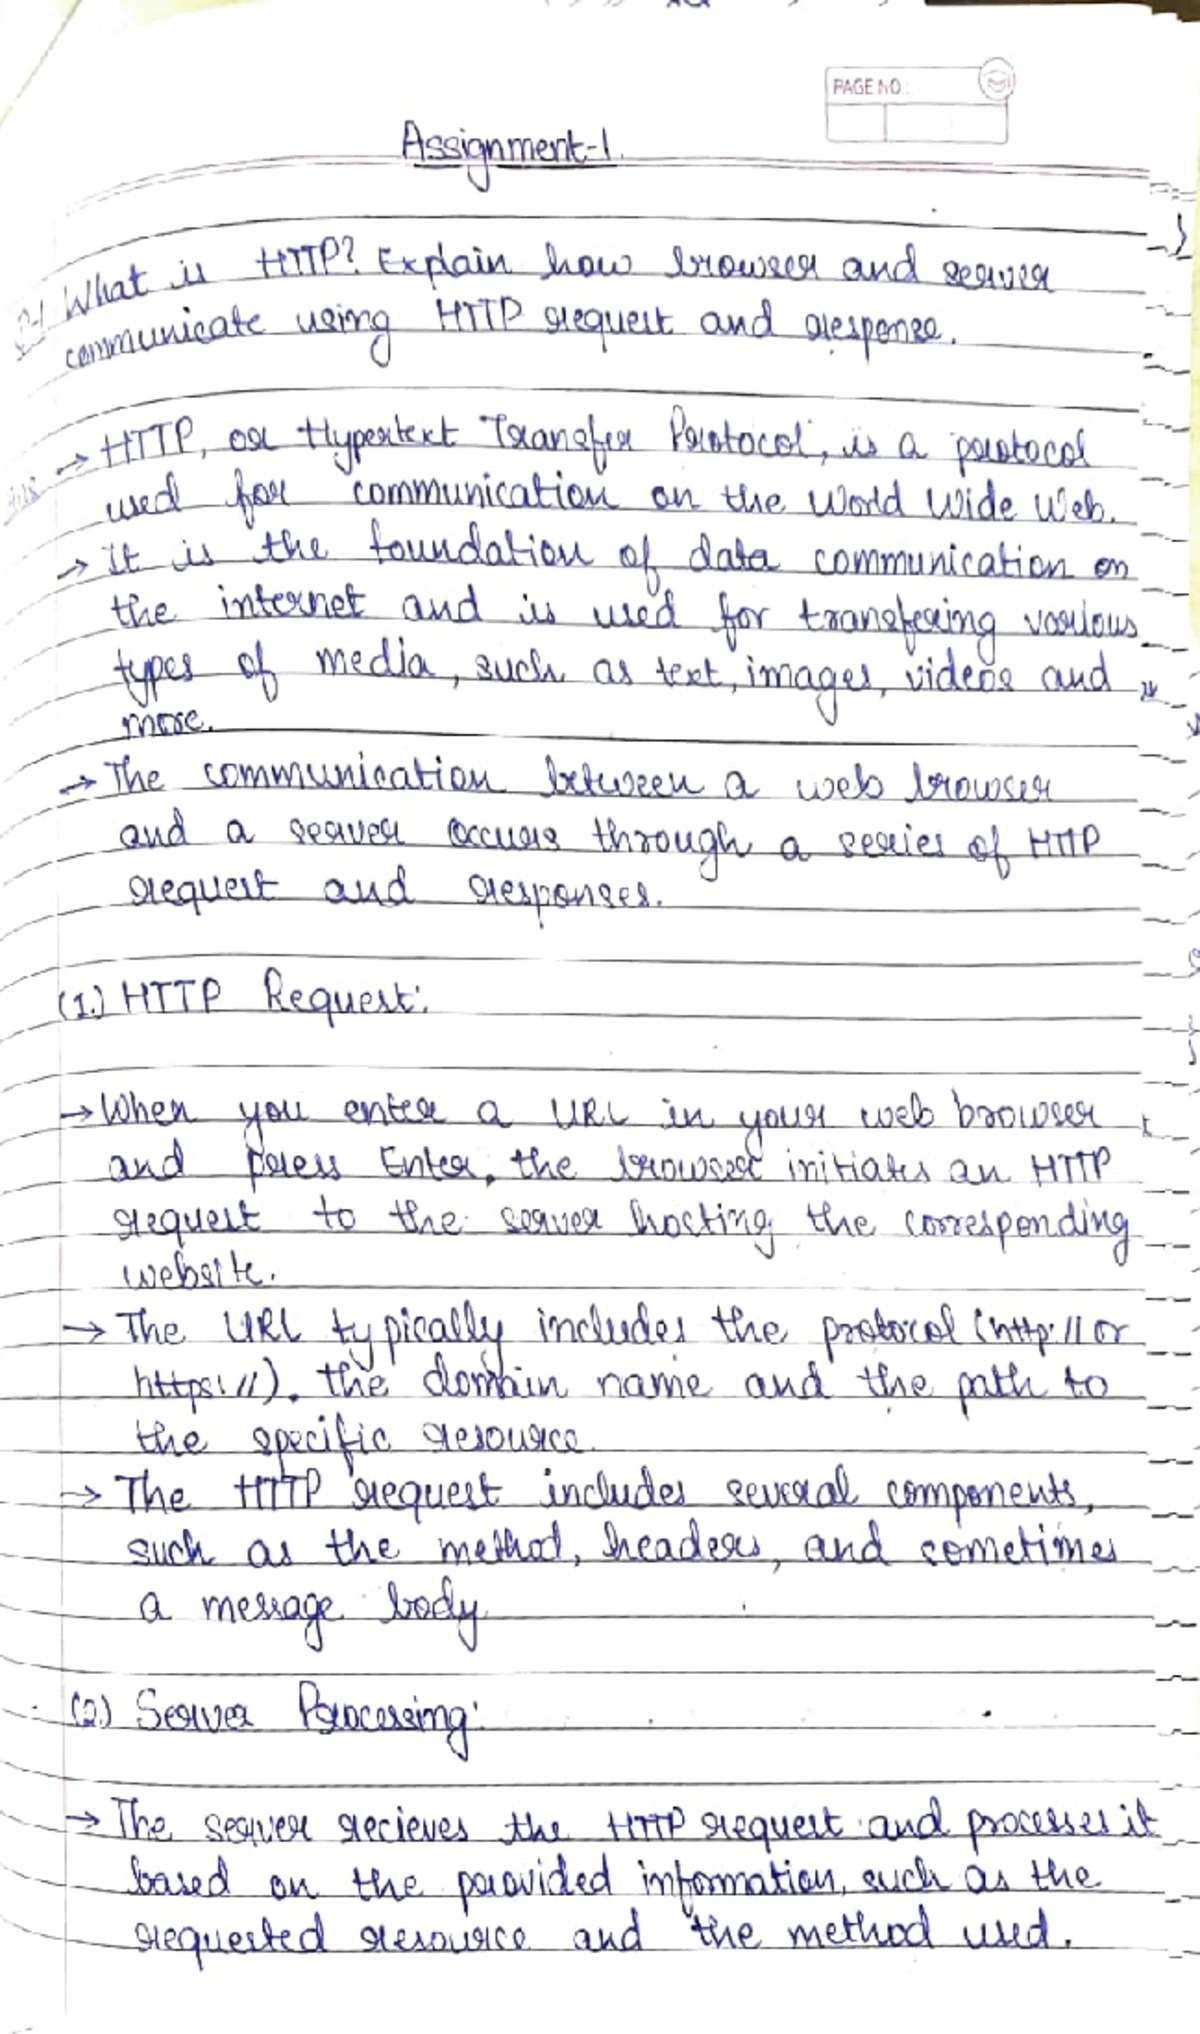 PAGE NO.:
Assignment-1.
Q-1 What is HTTP? Explain how browser and server
communicate using HTTP request and response.
→ HTTP, or Hypertext Transfer Protocol, is a protocol
used for communication on the World Wide Web.
→ It is the foundation of data communication on
the internet and is used for transfering various
types of media, such as text, images, videos and
more.
→ The communication between a web browser
and a server occurs through a series of HTTP
request and responses.
(1.) HTTP Request:
→ When you enter a URL in your web browser
and press Enter, the browser initiates an HTTP
request to the server hosting the corresponding
website.
→ The URL typically includes the protocol (http:// or
https://), the domain name and the path to
the specific resource.
→ The HTTP request includes several components,
such as the method, headers, and sometimes
a message body.
(2.) Server Processing:
→ The server recieves the HTTP request and processes it
based on the provided information, such as the
requested resource and the method used.